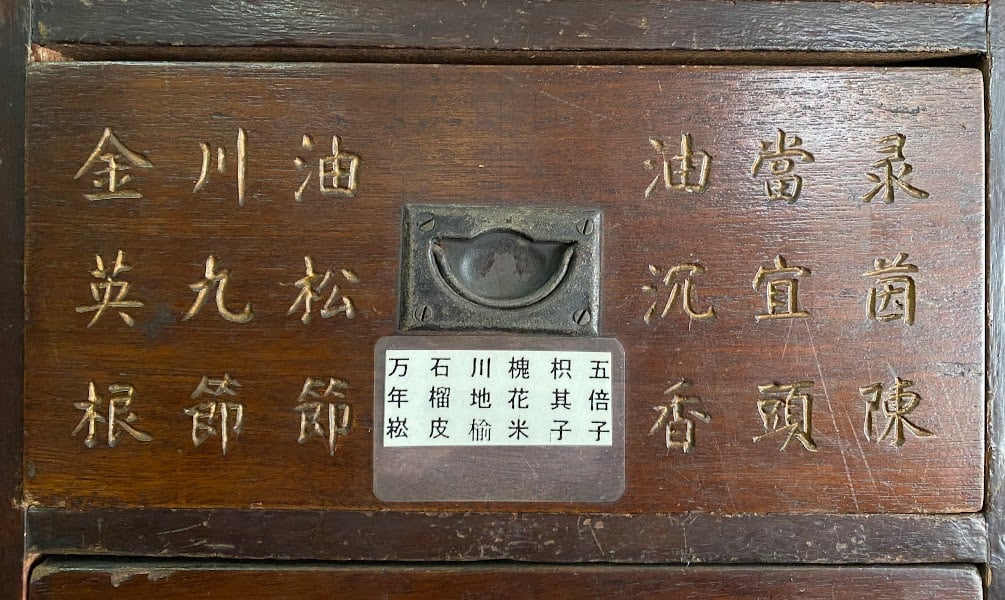 录茵陳
當宜頭
油沉香
油松節
川九節
金英根
五倍子
枳其子
槐花米
川地榆
石榴皮
万年崧